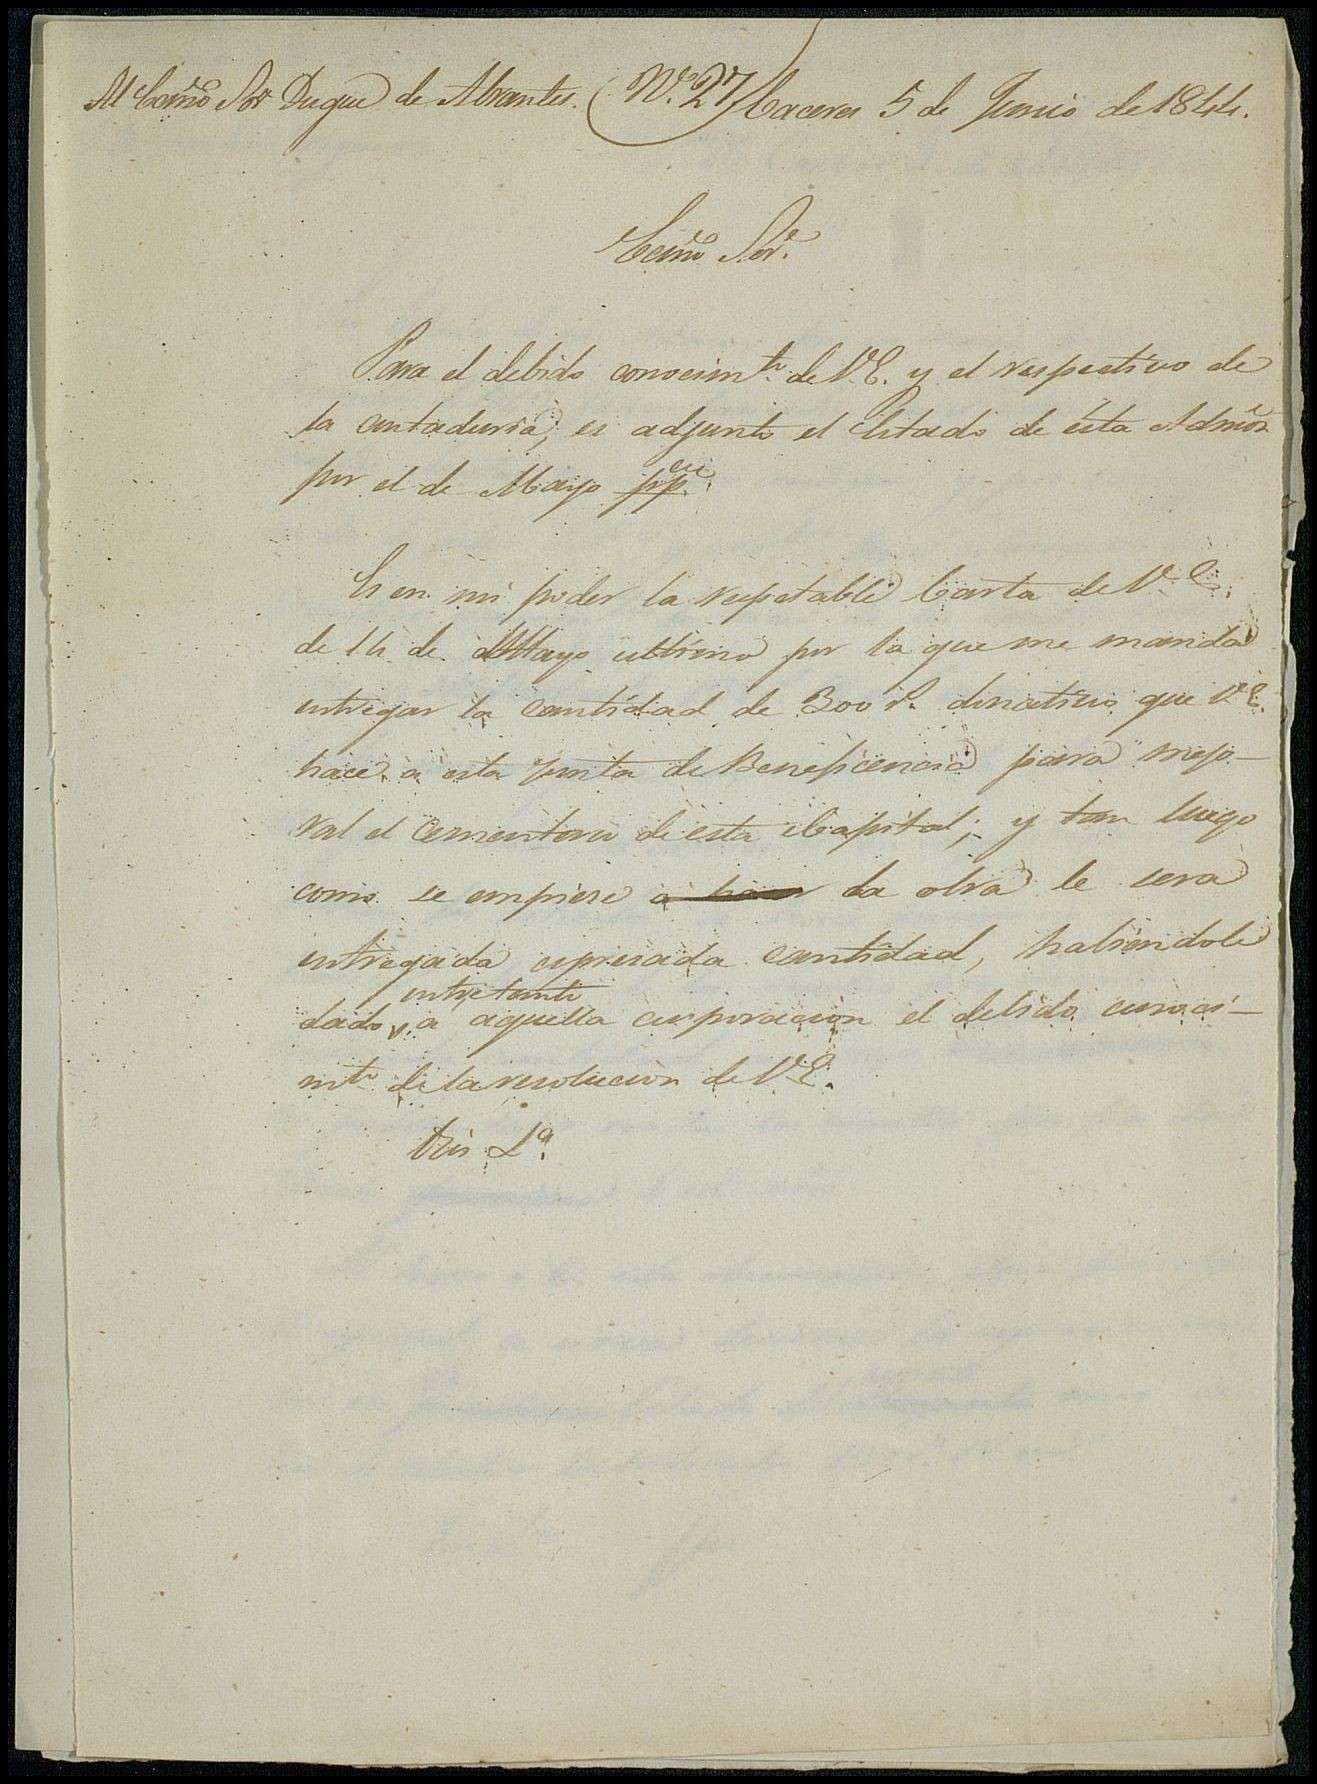 Al Excmo Sor Duque de Abrantes. (Nº. 27) Caceres 5 de Junio de 1844.
Excmo Sor.
Para el debido conocimto. de V.E. y el respectivo de
la contaduria, es adjunto el Estado de esta Admon
por el de Mayo ppdo.
Es en mi poder la respetable Carta de V.E.
de 14 de Mayo ultimo por la que me manda
entregar la cantidad de 300 rs. donativo que V.E.
hace a esta Junta de Beneficencia para mejo-
rar el cementerio de esta Capital; y tan luego
como se empiese la obra le sera
entregada espresada cantidad, habiendole
entretanto
dado a aquella corporacion el debido conoci-
mto de la resolucion de V.E.